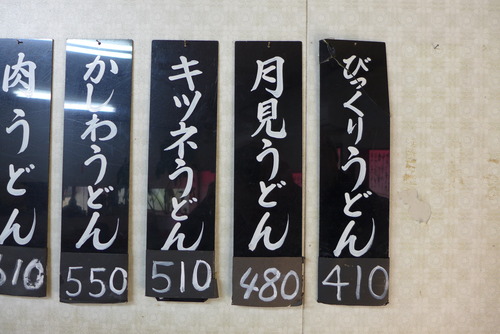 びっくりうどん
410
月見うどん
480
キツネうどん
510
かしわうどん
550
肉うどん
610